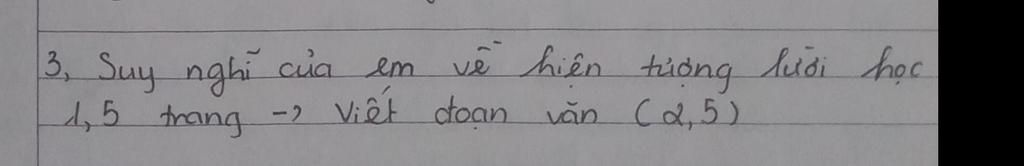 3, Suy nghĩ của em về hiện tượng lười học
1,5 trang -> Viết đoạn văn (2,5)